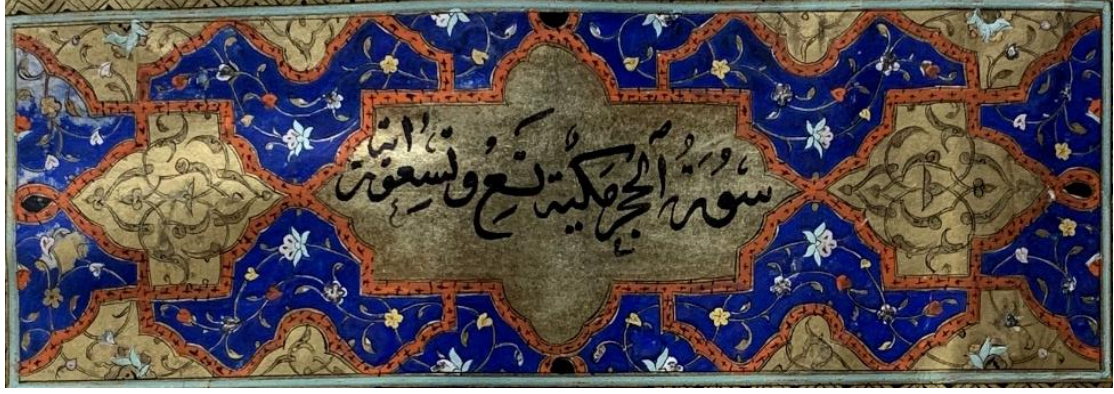 سورة الحجر مكية تسع وتسعون اية